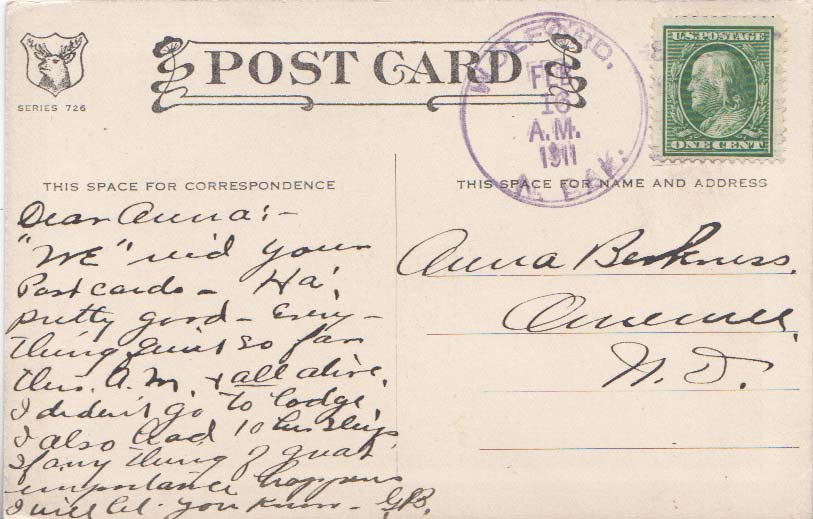 POST CARD
SERIES 726
WALFORD,
FEB
16
A.M.
1911
N. DAK.
U.S. POSTAGE
ONE CENT
THIS SPACE FOR CORRESPONDENCE
THIS SPACE FOR NAME AND ADDRESS
Dear Anna:-
"WE" rec'd your
Postcards - Ha!
pretty good - Every-
thing quiet so far
this A.M. & all alive.
I didn't go to lodge,
I also had 10 hrs sleep
If any thing of great
importance happens
I will let you know - G.B.
Anna Berkness.
Omemee,
N. D.